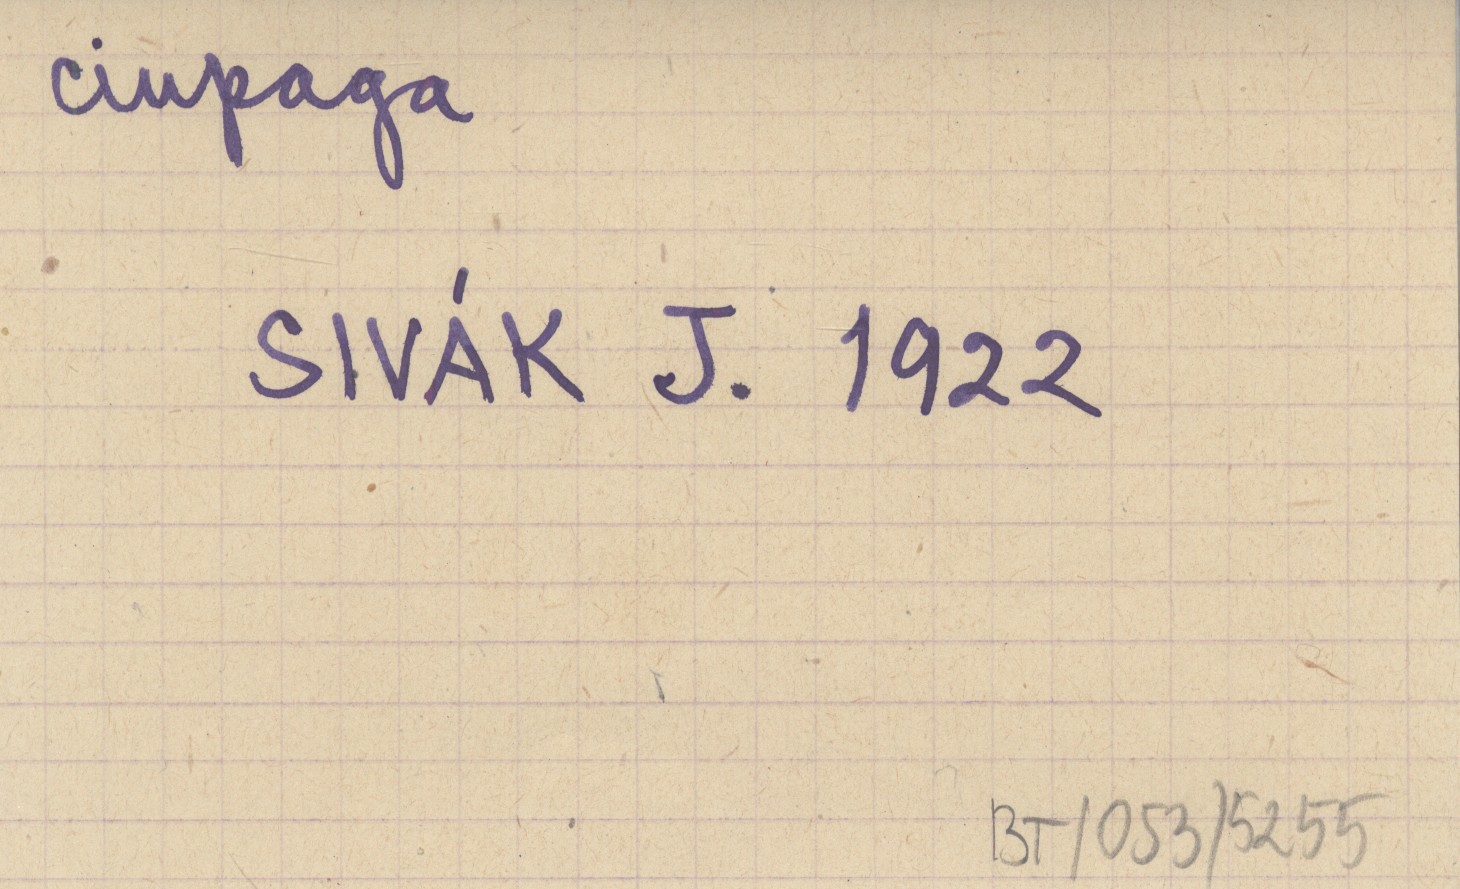 ciupaga
SIVÁK J. 1922
BT/053/5255